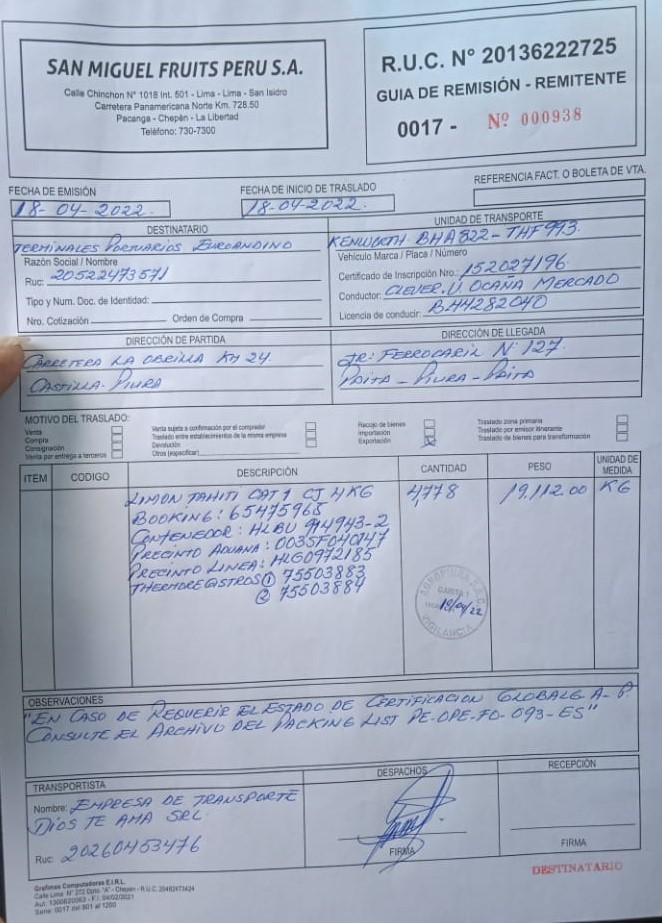 SAN MIGUEL FRUITS PERU S.A.
Calle Chinchon N° 1018 Int. 501 - Lima - Lima - San Isidro
Carretera Panamericana Norte Km. 728.50
Pacanga - Chepén - La Libertad
Teléfono: 730-7300
R.U.C. N° 20136222725
GUIA DE REMISIÓN - REMITENTE
0017 - Nº 000938
FECHA DE EMISIÓN
18-04-2022.
FECHA DE INICIO DE TRASLADO
18-04-2022.
REFERENCIA FACT. O BOLETA DE VTA.
DESTINATARIO
TERMINALES PORTUARIOS EUROANDINO
Razón Social / Nombre
Ruc: 20522473571
Tipo y Num. Doc. de Identidad:
Nro. Cotización Orden de Compra
UNIDAD DE TRANSPORTE
KENWORTH BHA822-THF993.
Vehículo Marca / Placa / Número
Certificado de Inscripción Nro.: 152027196.
Conductor: CLEVER. U OCAÑA MERCADO
Licencia de conducir: BH4282040
DIRECCIÓN DE PARTIDA
CARRETERA LA OBRILLA KM 24.
CASTILLA - PIURA
DIRECCIÓN DE LLEGADA
JR: FERROCARIL N° 127.
PAITA - PIURA - PAITA
MOTIVO DEL TRASLADO:
Venta
Compra
Consignación
Venta por entrega a terceros
Venta sujeta a confirmación por el comprador
Traslado entre establecimientos de la misma empresa
Devolución
Otros (especificar)
Recojo de bienes
Importación
Exportación
Traslado zona primaria
Traslado por emisor itinerante
Traslado de bienes para transformación
ITEM CODIGO DESCRIPCIÓN CANTIDAD PESO UNIDAD DE MEDIDA
LIMON TAHITI CAT 1 CJ 4KG 4,778 19,112.00 KG
BOOKING: 65475965
CONTENEDOR: HLBU 914943-2
PRECINTO ADUANA: 0035F040147
PRECINTO LINEA: HLG0972185
THERMOREGISTROS ① 75503883
② 75503884
GARITA 1
18/04/22
VIGILANCIA
OBSERVACIONES
"EN CASO DE REQUERIR EL ESTADO DE CERTIFICACION GLOBALG.A.P.
CONSULTE EL ARCHIVO DEL PACKING LIST PE-OPE-FO-093-ES"
TRANSPORTISTA
Nombre: EMPRESA DE TRANSPORTE
DIOS TE AMA SRL
Ruc: 20260453476
DESPACHOS
FIRMA
RECEPCIÓN
FIRMA
DESTINATARIO
Grafinos Computadoras E.I.R.L.
Calle Lima N° 272 Dpto. "A" - Chepén - R.U.C. 20482473424
Aut: 1300620063 - F.I. 04/02/2021
Serie: 0017 del 801 al 1200